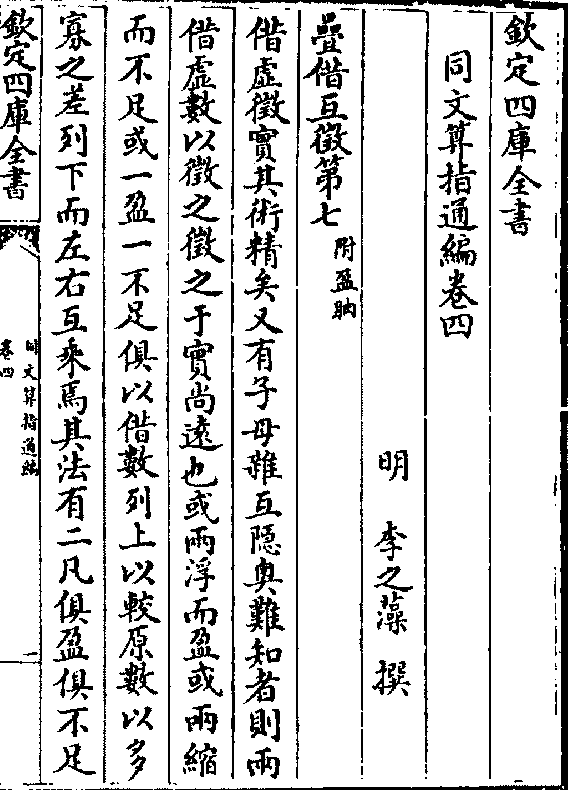 欽定四庫全書
同文算指通編卷四
明 李之藻 撰
疊借互徵第七 附盈朒
借虛徵實其術精矣又有子母雜互隱奧難知者則兩
借虛數以徵之徵之于實尚遠也或兩浮而盈或兩縮
而不足或一盈一不足俱以借數列上以較原數以多
寡之差列下而左右互乘焉其法有二凡俱盈俱不足
欽定四庫全書
同文算指通編
卷四
一